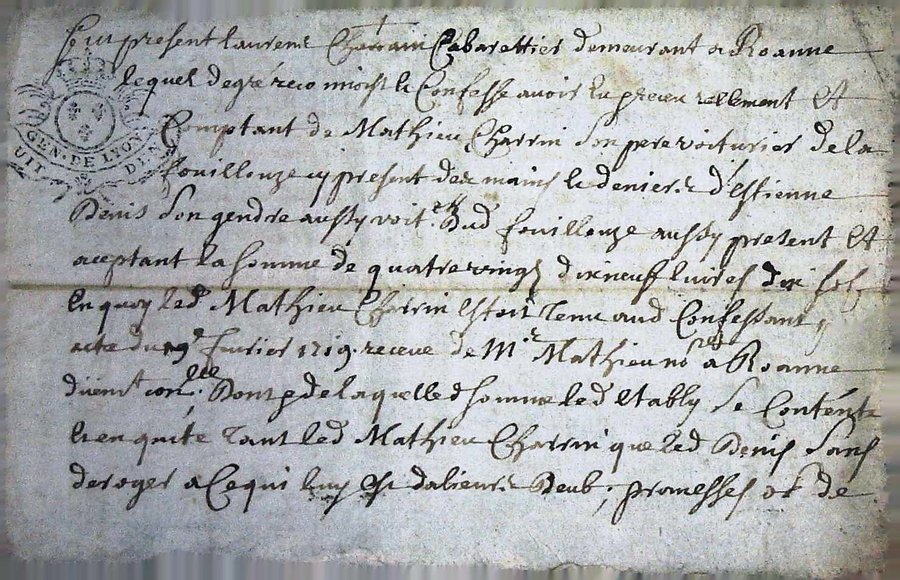 fut present Laurens Charrain Cabarettier demeurant a Roanne
lequel de gré reconnoist & Confesse avoir eu receu reellement Et
Comptant de Mathieu Charrin son pere voiturier de la
fouillouze cy present des mains & deniers d'Estienne
Denis son gendre aussy voit.er dud fouillouze aussy present Et
aceptant la somme de quatre vingt dix neuf livres dix sols
En quoy led Mathieu Charrin estoit tenu aud Confessant
acte du 9e fevrier 1719 receue de Me Mathieu no.re a Roanne
Duem.t con.lee Dont & de laquelled somme led Etably se Contente
& en quite tant led Mathieu Charrin que led Denis sans
deroger a Ce qui luy Est dalieurs Deub ; promesses ob de
GEN. DE LYON